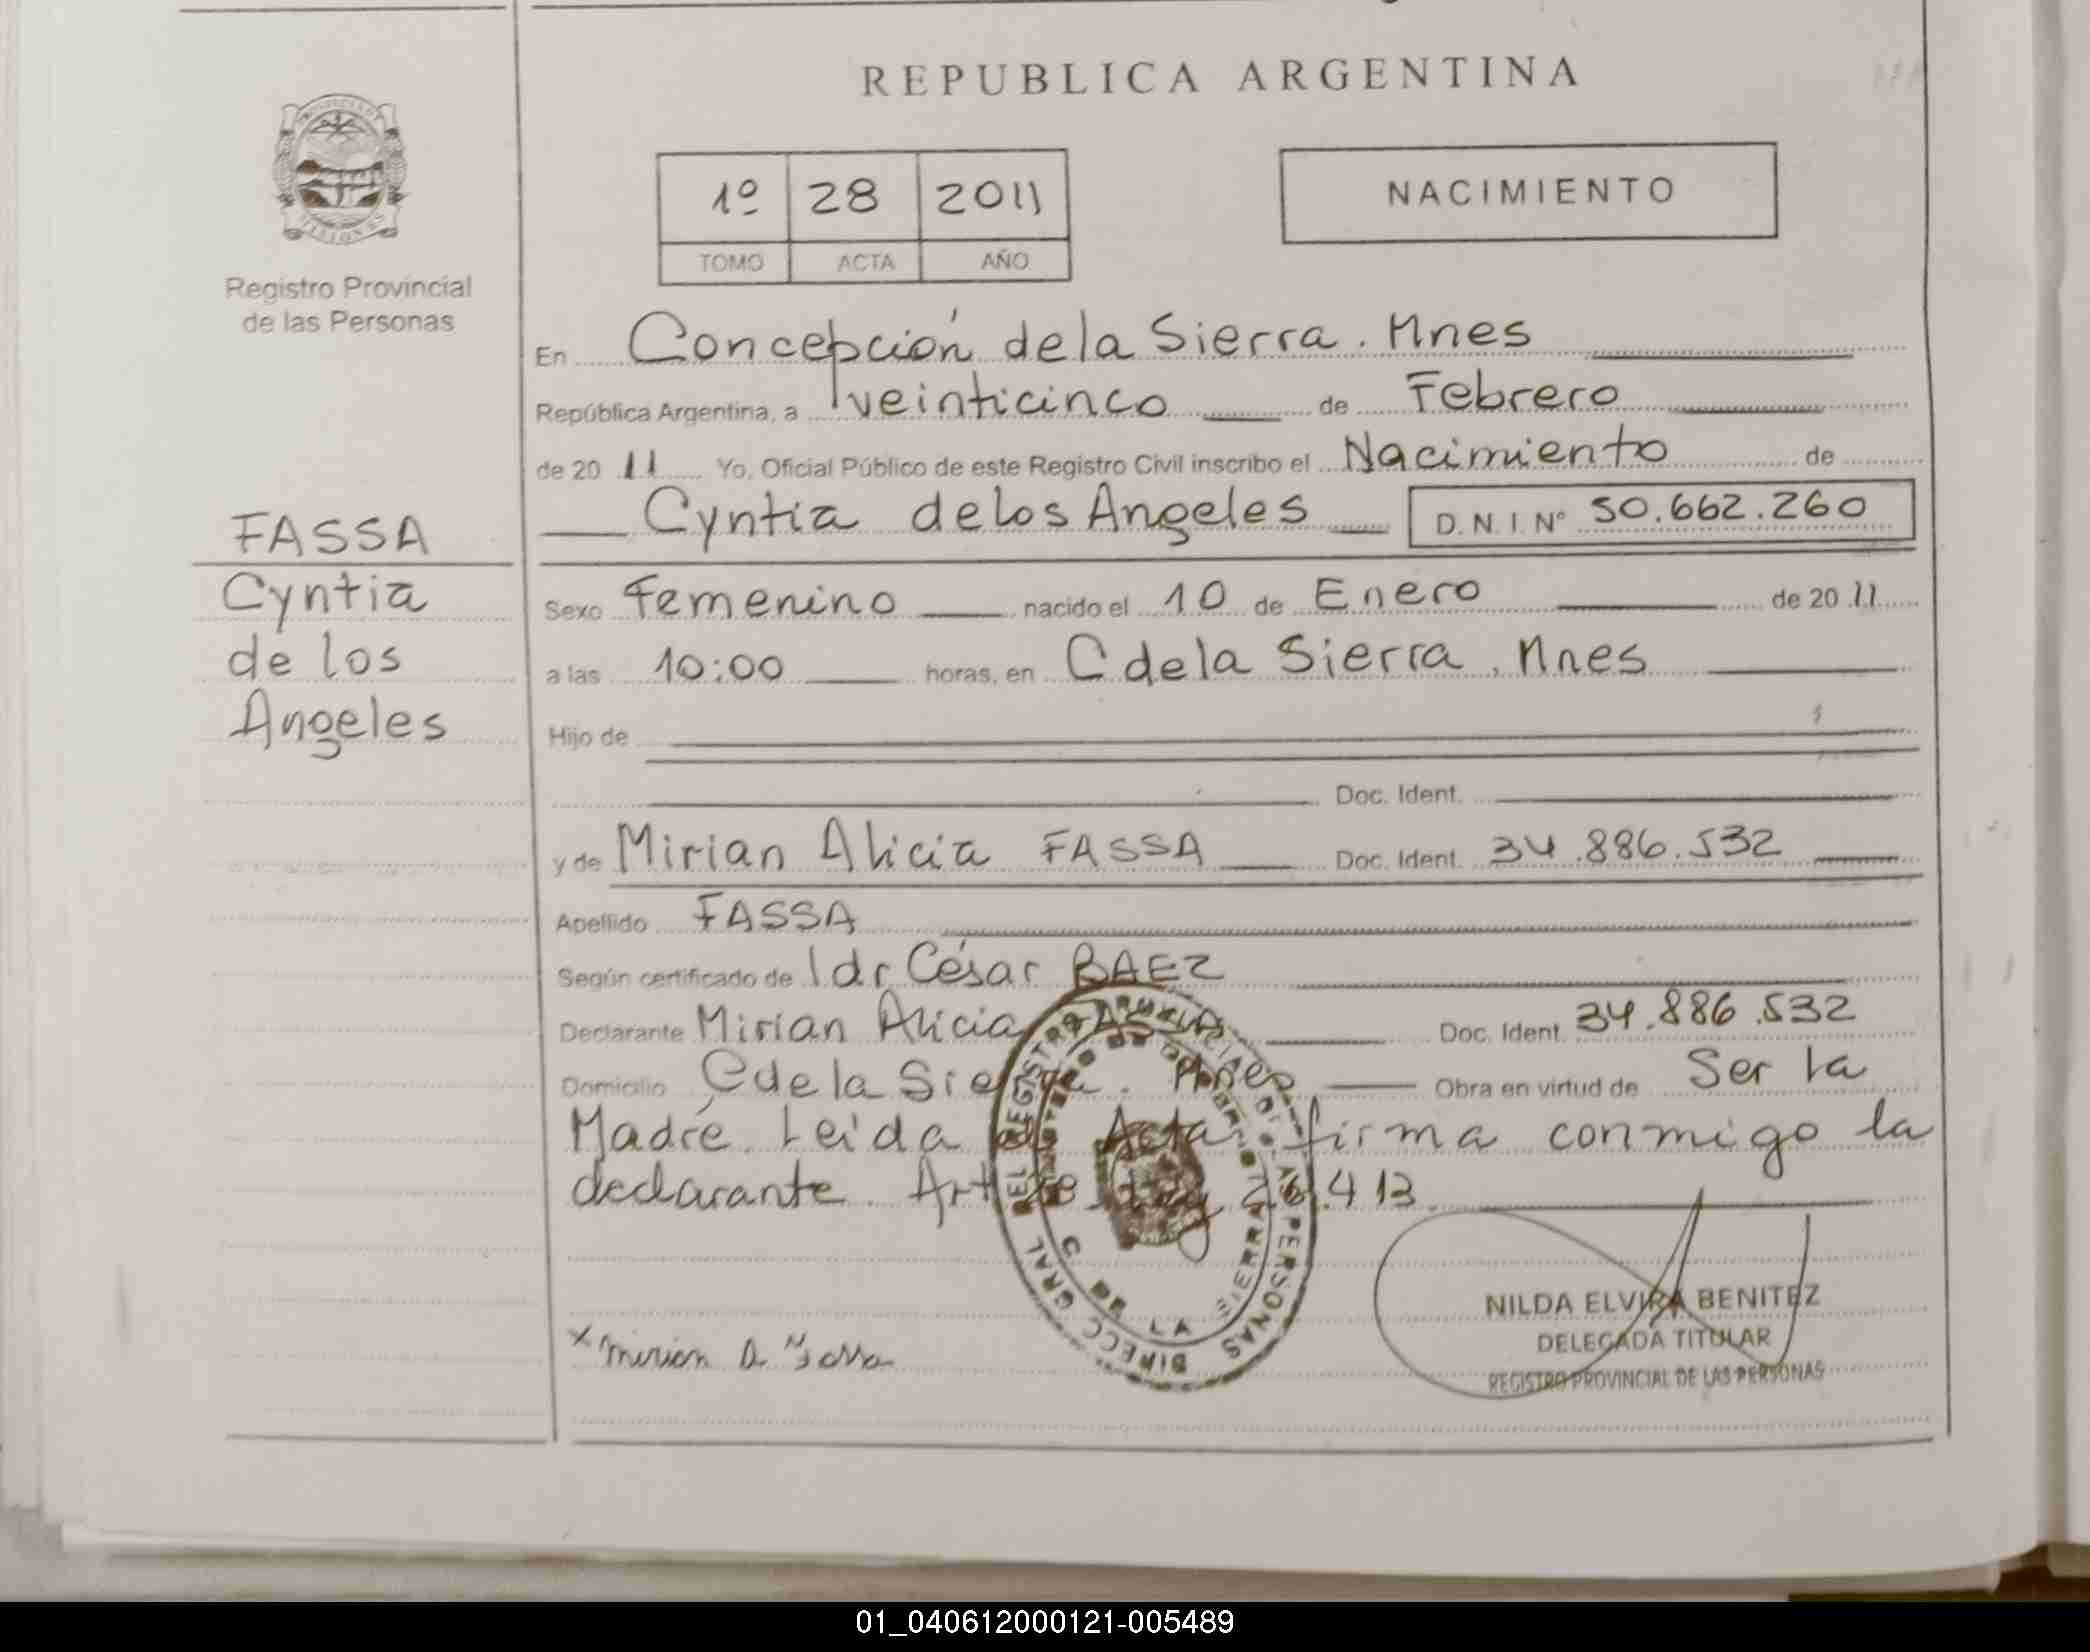 REPUBLICA ARGENTINA
PROVINCIA DE
MISIONES
Registro Provincial
de las Personas
1º 28 2011
TOMO ACTA AÑO
NACIMIENTO
En Concepción de la Sierra. Mnes
República Argentina, a veinticinco de Febrero
de 20 11 Yo, Oficial Público de este Registro Civil inscribo el Nacimiento de
Cyntia de los Angeles D.N.I.Nº 50.662.260
FASSA
Cyntia
de los
Angeles
Sexo Femenino nacido el 10 de Enero de 20 11
a las 10:00 horas, en C de la Sierra. Mnes
Hijo de
Doc. Ident.
y de Mirian Alicia FASSA Doc. Ident. 34.886.532
Apellido FASSA
Según certificado de César BAEZ
Declarante Mirian Alicia Doc. Ident. 34.886.532
Domicilio C de la Sierra. Mnes Obra en virtud de Ser la
Madre. Leida Acta firma conmigo la
declarante. Art .413
DIRECC. GRAL. DEL REGISTRO PROVINCIAL DE LAS PERSONAS
C. DE LA SIERRA
x Mirian A. Fassa
NILDA ELVIRA BENITEZ
DELEGADA TITULAR
REGISTRO PROVINCIAL DE LAS PERSONAS
01_040612000121-005489